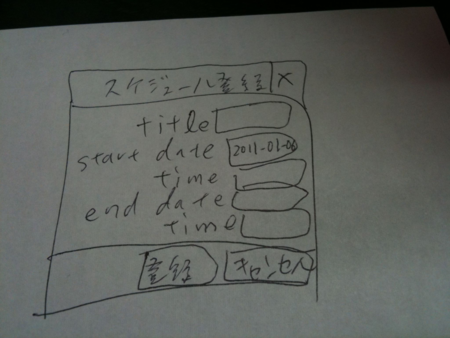 スケジュール登録 X
title
start date 2011-01-06
time
end date
time
登録 キャンセル